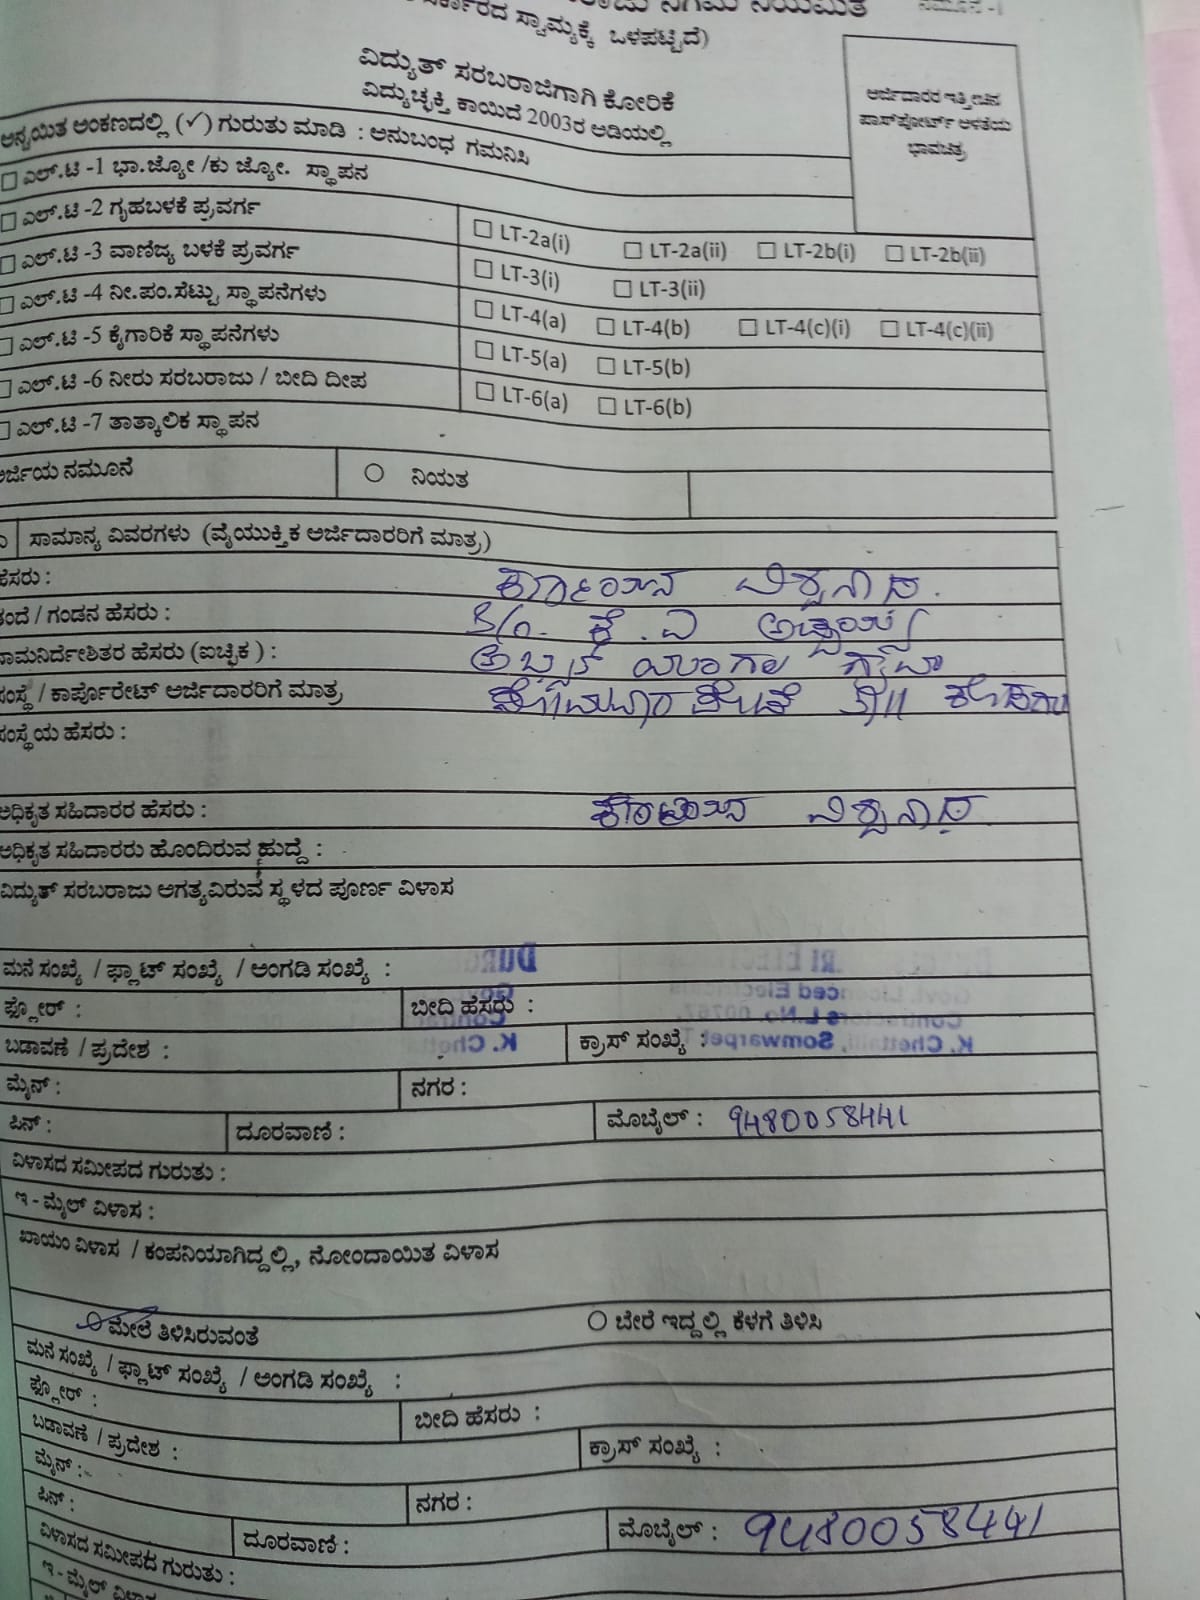 ನಿಗಮ ನಿಯಮಿತ
ನಮೂನೆ -1
ಸರ್ಕಾರದ ಸ್ವಾಮ್ಯಕ್ಕೆ ಒಳಪಟ್ಟಿದೆ)
ವಿದ್ಯುತ್ ಸರಬರಾಜಿಗಾಗಿ ಕೋರಿಕೆ
ವಿದ್ಯುಚ್ಛಕ್ತಿ ಕಾಯಿದೆ 2003ರ ಅಡಿಯಲ್ಲಿ
ಅರ್ಜಿದಾರರ ಇತ್ತೀಚಿನ
ಪಾಸ್‌ಪೋರ್ಟ್ ಅಳತೆಯ
ಭಾವಚಿತ್ರ
ಅನ್ವಯಿತ ಅಂಕಣದಲ್ಲಿ (✓) ಗುರುತು ಮಾಡಿ : ಅನುಬಂಧ ಗಮನಿಸಿ
☐ ಎಲ್.ಟಿ -1 ಭಾ.ಜ್ಯೋ /ಕು ಜ್ಯೋ. ಸ್ಥಾಪನ
☐ ಎಲ್.ಟಿ -2 ಗೃಹಬಳಕೆ ಪ್ರವರ್ಗ ☐ LT-2a(i) ☐ LT-2a(ii) ☐ LT-2b(i) ☐ LT-2b(ii)
☐ ಎಲ್.ಟಿ -3 ವಾಣಿಜ್ಯ ಬಳಕೆ ಪ್ರವರ್ಗ ☐ LT-3(i) ☐ LT-3(ii)
☐ ಎಲ್.ಟಿ -4 ನೀ.ಪಂ.ಸೆಟ್ಟು ಸ್ಥಾಪನೆಗಳು ☐ LT-4(a) ☐ LT-4(b) ☐ LT-4(c)(i) ☐ LT-4(c)(ii)
☐ ಎಲ್.ಟಿ -5 ಕೈಗಾರಿಕೆ ಸ್ಥಾಪನೆಗಳು ☐ LT-5(a) ☐ LT-5(b)
☐ ಎಲ್.ಟಿ -6 ನೀರು ಸರಬರಾಜು / ಬೀದಿ ದೀಪ ☐ LT-6(a) ☐ LT-6(b)
☐ ಎಲ್.ಟಿ -7 ತಾತ್ಕಾಲಿಕ ಸ್ಥಾಪನ
ಅರ್ಜಿಯ ನಮೂನೆ ○ ನಿಯತ
ಸಾಮಾನ್ಯ ವಿವರಗಳು (ವೈಯುಕ್ತಿಕ ಅರ್ಜಿದಾರರಿಗೆ ಮಾತ್ರ)
ಹೆಸರು : ವಿಶ್ವನಾಥ.
ತಂದೆ / ಗಂಡನ ಹೆಸರು : S/o. ಕೆ . ಎ
ನಾಮನಿರ್ದೇಶಿತರ ಹೆಸರು (ಐಚ್ಛಿಕ ) :
ಸಂಸ್ಥೆ / ಕಾರ್ಪೊರೇಟ್ ಅರ್ಜಿದಾರರಿಗೆ ಮಾತ್ರ ಸೋಮವಾರಪೇಟೆ
ಸಂಸ್ಥೆಯ ಹೆಸರು :
ಅಧಿಕೃತ ಸಹಿದಾರರ ಹೆಸರು : ವಿಶ್ವನಾಥ
ಅಧಿಕೃತ ಸಹಿದಾರರು ಹೊಂದಿರುವ ಹುದ್ದೆ :
ವಿದ್ಯುತ್ ಸರಬರಾಜು ಅಗತ್ಯವಿರುವ ಸ್ಥಳದ ಪೂರ್ಣ ವಿಳಾಸ
ಮನೆ ಸಂಖ್ಯೆ / ಫ್ಲಾಟ್ ಸಂಖ್ಯೆ / ಅಂಗಡಿ ಸಂಖ್ಯೆ :
ಫ್ಲೋರ್ : ಬೀದಿ ಹೆಸರು :
ಬಡಾವಣೆ / ಪ್ರದೇಶ : ಕ್ರಾಸ್ ಸಂಖ್ಯೆ :
ಮೈನ್ : ನಗರ :
ಪಿನ್ : ದೂರವಾಣಿ : ಮೊಬೈಲ್ : 9480058441
ವಿಳಾಸದ ಸಮೀಪದ ಗುರುತು :
ಇ - ಮೈಲ್ ವಿಳಾಸ :
ಖಾಯಂ ವಿಳಾಸ / ಕಂಪನಿಯಾಗಿದ್ದಲ್ಲಿ, ನೋಂದಾಯಿತ ವಿಳಾಸ
○ ಮೇಲೆ ತಿಳಿಸಿರುವಂತೆ ○ ಬೇರೆ ಇದ್ದಲ್ಲಿ ಕೆಳಗೆ ತಿಳಿಸಿ
ಮನೆ ಸಂಖ್ಯೆ / ಫ್ಲಾಟ್ ಸಂಖ್ಯೆ / ಅಂಗಡಿ ಸಂಖ್ಯೆ :
ಫ್ಲೋರ್ : ಬೀದಿ ಹೆಸರು :
ಬಡಾವಣೆ / ಪ್ರದೇಶ : ಕ್ರಾಸ್ ಸಂಖ್ಯೆ :
ಮೈನ್ : ನಗರ :
ಪಿನ್ : ದೂರವಾಣಿ : ಮೊಬೈಲ್ : 9480058441
ವಿಳಾಸದ ಸಮೀಪದ ಗುರುತು :
ಇ - ಮೈಲ್ ವಿಳಾಸ :